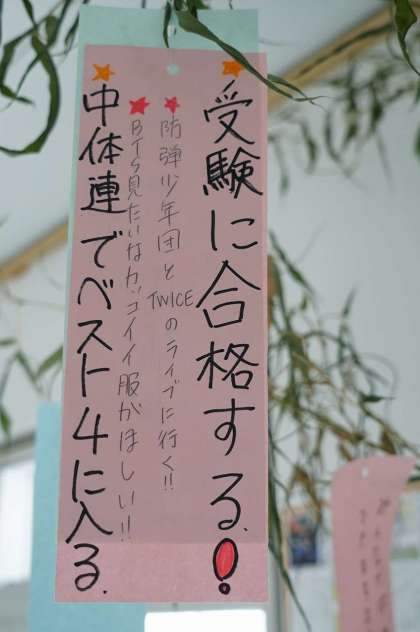 受験に合格する!
防弾少年団とTWICEのライブに行く!!
BTS見たいなカッコイイ服がほしい!!
中体連でベスト4に入る.